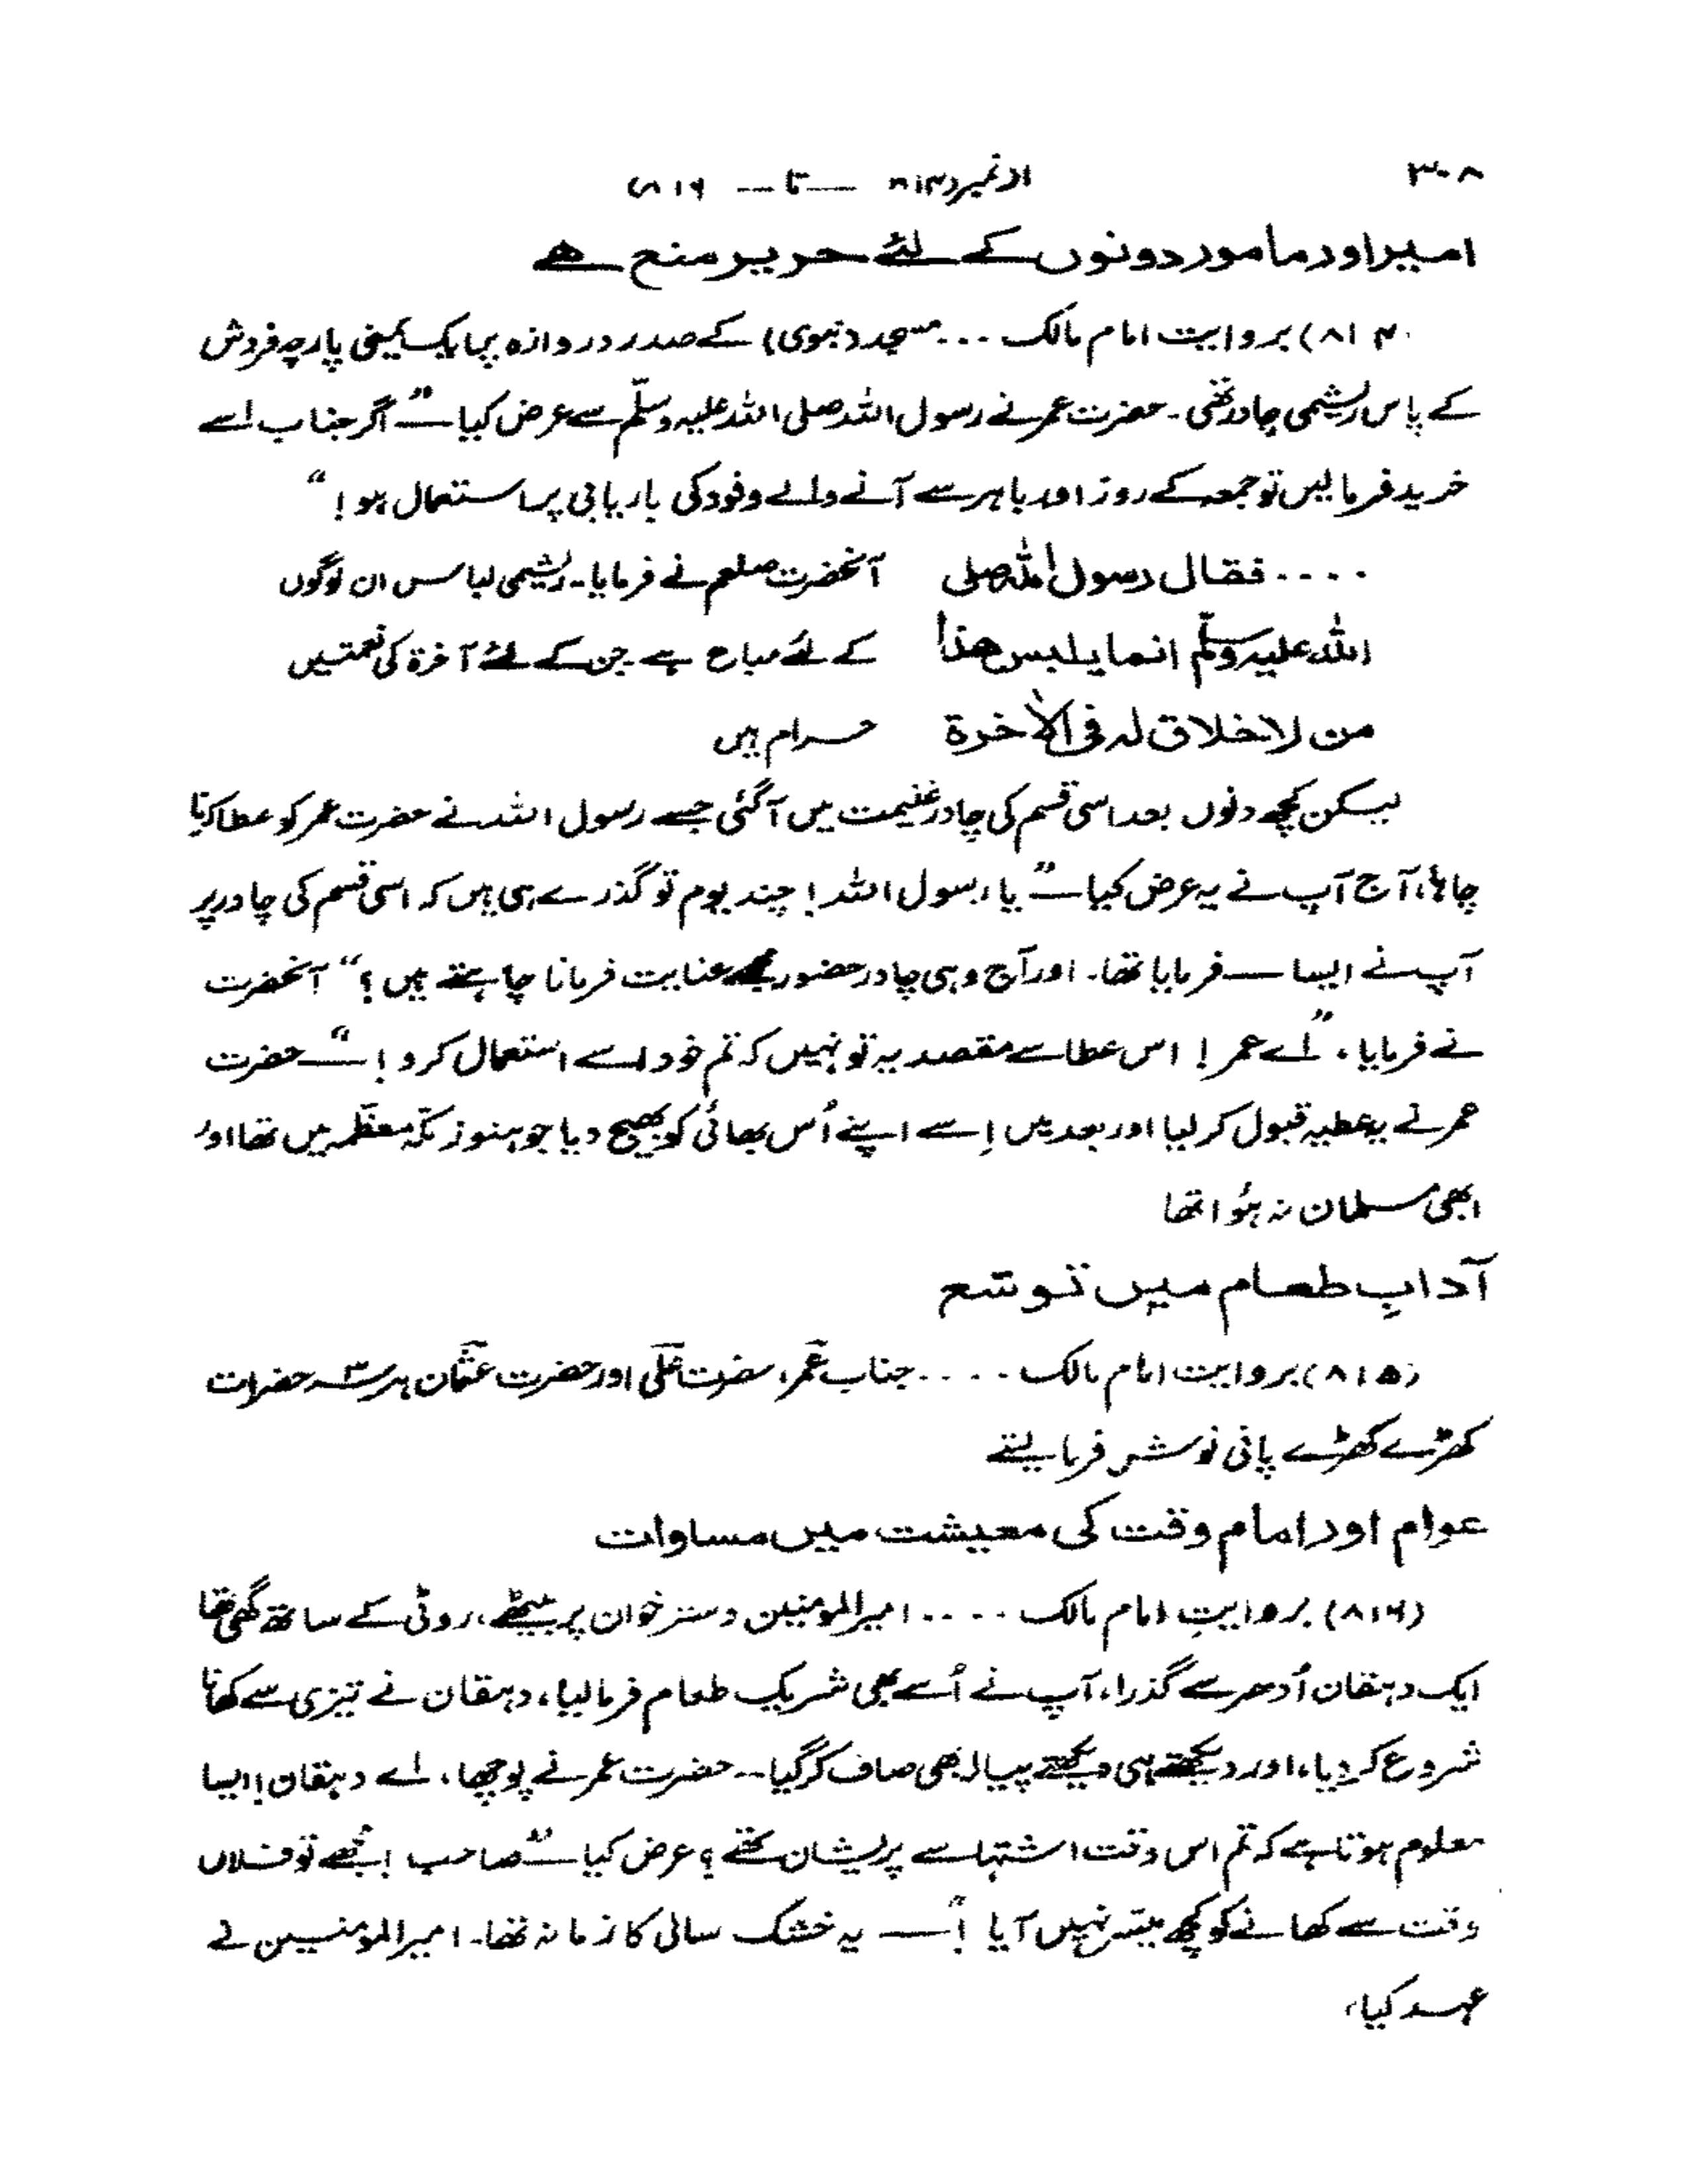 ۳۰۸
از نمبر ۸۱۴ — تا — ۸۱۶
امیر اور مامور دونوں کے لئے حریر منع ہے
۸۱۴) بروایت امام مالک ... مسجد (نبوی) کے صدر دروازہ پر ایک یمینی پارچہ فروش
کے پاس ریشمی چادر تھی۔ حضرت عمر نے رسول اللہ صلی اللہ علیہ وسلّم سے عرض کیا — "اگر جناب اسے
خرید فرما لیں تو جمعہ کے روز اور باہر سے آنے والے وفود کی باریابی پر استعمال ہو!"
.... فقال رسول اللہ صلی
اللہ علیہ وسلّم انما یلبس ھذا
من لا خلاق لہ فی الاٰخرة
آنحضرت صلعم نے فرمایا۔ ریشمی لباس ان لوگوں
کے لئے مباح ہے جن کے لئے آخرة کی نعمتیں
حرام ہیں
لیکن کچھ دنوں بعد اسی قسم کی چادر غنیمت میں آگئی جسے رسول اللہ نے حضرت عمر کو عطا کرنا
چاہا، آج آپ نے یہ عرض کیا — "یا رسول اللہ! چند یوم تو گذرے ہی ہیں کہ اسی قسم کی چادر پر
آپ نے ایسا — فرمایا تھا۔ اور آج وہی چادر حضور مجھے عنایت فرمانا چاہتے ہیں؟" آنحضرت
نے فرمایا، "اے عمر! اس عطا سے مقصد یہ تو نہیں کہ تم خود اسے استعمال کرو!" — حضرت
عمر نے یہ عطیہ قبول کر لیا اور بعد میں اِسے اپنے اُس بھائی کو بھیج دیا جو ہنوز مکّہ معظّمہ میں تھا اور
ابھی مسلمان نہ ہُوا تھا
آدابِ طعام میں توسّع
(۸۱۵) بروایت امام مالک .... جناب عمر، حضرت علی اور حضرت عثمان ہر سہ حضرات
کھڑے کھڑے پانی نوش فرما لیتے
عوام اور امام وقت کی معیشت میں مساوات
(۸۱۶) بروایتِ امام مالک .... امیر المومنین دستر خوان پر بیٹھے، روٹی کے ساتھ گھی تھا
ایک دہقان اُدھر سے گذرا، آپ نے اُسے بھی شریک طعام فرما لیا، دہقان نے تیزی سے کھانا
شروع کر دیا، اور دیکھتے ہی دیکھتے پیالہ بھی صاف کر گیا۔ حضرت عمر نے پوچھا، اے دہقان! ایسا
معلوم ہوتا ہے کہ تم اس وقت اشتہا سے پریشان تھے؟ عرض کیا — "صاحب! مجھے تو فلاں
وقت سے کھانے کو کچھ میسّر نہیں آیا!" — یہ خشک سالی کا زمانہ تھا۔ امیر المومنین نے
عہد کیا،